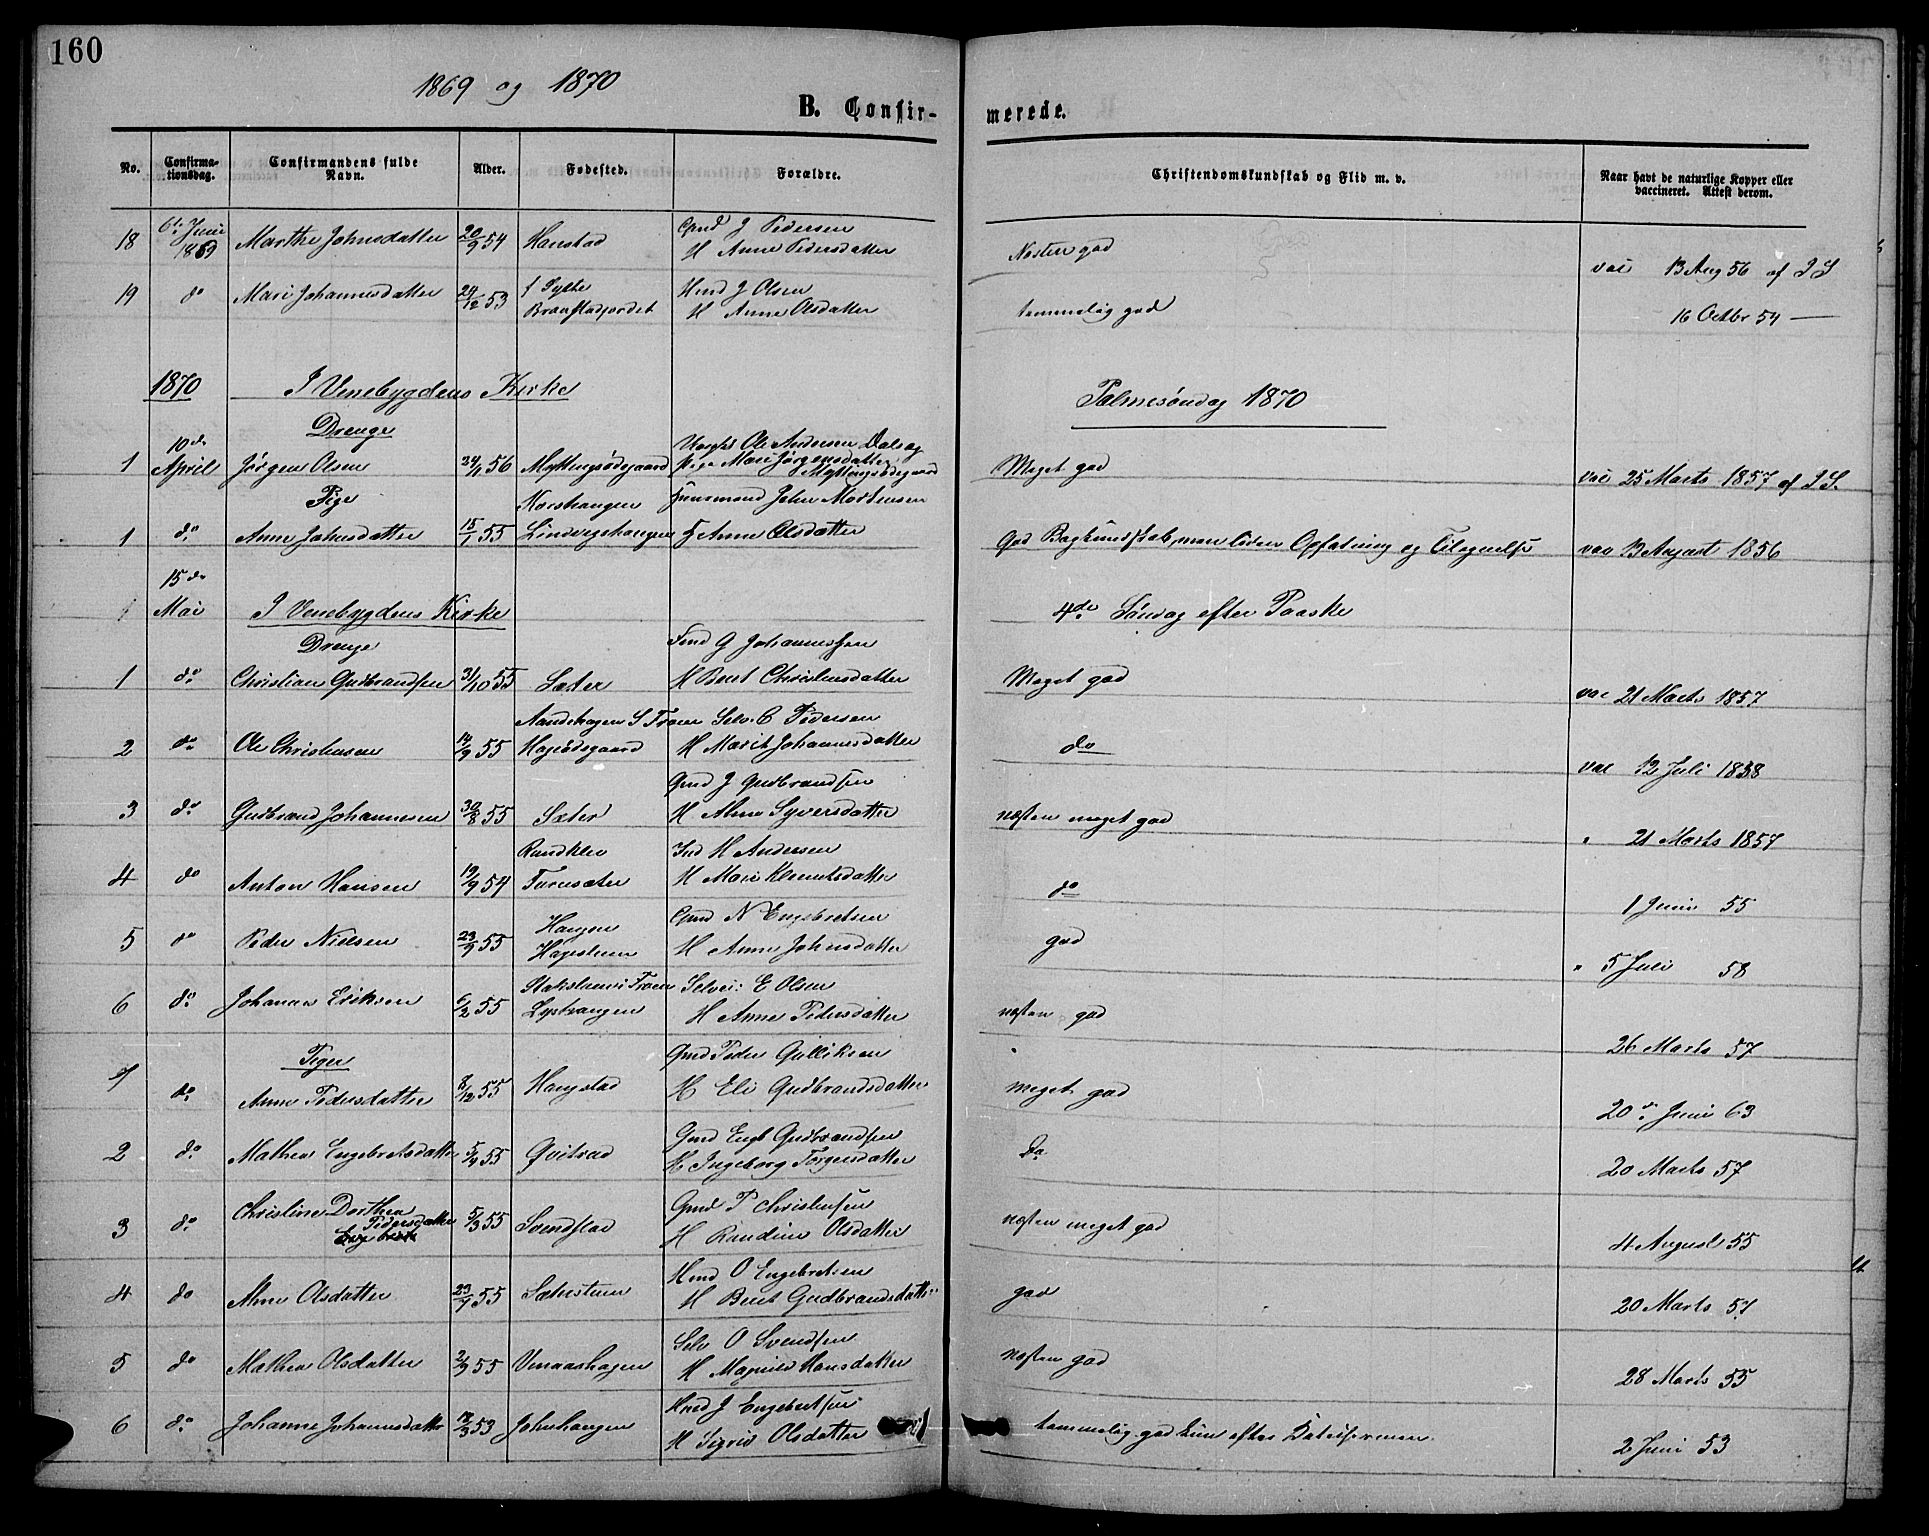 160
1869 og 1870
B. Confirmerede.
No. Confirmationsdag. Confirmandens fulde Navn. Alder. Fødested. Forældre. Christendomskundskab og Flid m. v. Naar havt de naturlige Kopper eller vaccineret. Attest derom.
18 6te Juni 1869 Marthe Johnsdatter 20/9 54 Hanstad Gmd J Pedersen
H Anne Pedersdatter Næsten god vac 13 Aug 56 af J S
19 do Mari Johannesdatter 24/12 53 Brænstadjordet Hmd J Olsen
H Anne Olsdatter temmelig god 16 Octbr 54 —
1870 I Venebygdens Kirke Palmesøndag 1870
Drenge
10de April
1 Jørgen Olsen 24/1 56 Myttingsødegaard Ungk Ole Andersen Dal og
Pige Mari Jørgensdatter Myttingsødegaard Meget god vac 25 Marts 1857 af J S.
Pige
1 do Anne Johnsdatter 15/1 55 Korshaugen
Lindvigshaugen Huusmand John Mortensen
H Anne Olsdatter God Bogkundskab, men liden Opfatning og Tilegnelse vac 13 August 1856
15de Mai I Venebygdens Kirke 4de Søndag efter Paaske
Drenge
1 do Christian Gudbrandsen 31/10 55 Sæter G Johannessen
H Berit Christensdatter Meget god vac 21 Marts 1857
2 do Ole Christensen 14/9 55 S Froen
Selv. C Pedersen
H Marit Johannesdatter do vac 12 Juli 1858
3 do Gudbrand Johannesen 30/8 55 Sæter Gmd J Gudbrandsen
H Anne Syversdatter næsten meget god " 21 Marts 1857
4 do Anton Hansen 19/9 54 Randklev
Furusæter Ind H Andersen
H Mari Klemetsdatter do 1 Juni 55
5 do Peder Nielsen 23/9 55 Haugen
Hagesteen Gmd N Engebretsen
H Anne Johnsdatter god " 5 Juli 58
6 do Johannes Eriksen 6/2 55 i Froen
Selvei: E Olsen
H Anne Pedersdatter næsten god 26 Marts 57
Piger
1 do Anne Pedersdatter 8/12 55 Haugstad Gmd Peder Gulliksen
H Eli Gudbrandsdatter meget god 20de Juni 63
2 do Mathea Engebretsdatter 5/9 55 Qvitrud Gmd Engb Gudbrandsen
H Ingeborg Torgersdatter Do 20 Marts 57
3 do Christine Dorthea Pedersdatter 5/3 55 Svendstad Gmd P Christensen
H Randine Olsdatter næsten meget god 4 August 55
4 do Anne Olsdatter 23/7 55 Sæterstuen Hmd O Engebretsen
H Berit Gudbrandsdatter god 20 Marts 57
5 do Mathea Olsdatter 2/9 55 Venaashagen Selv O Svendsen
H Magnild Hansdatter næsten god 28 Marts 55
6 do Johanne Johannesdatter 12/3 53 Johnhaugen Hmd J Engebretsen
H Sigrid Olsdatter temmelig god kun efter Katekismen 2 Juni 53